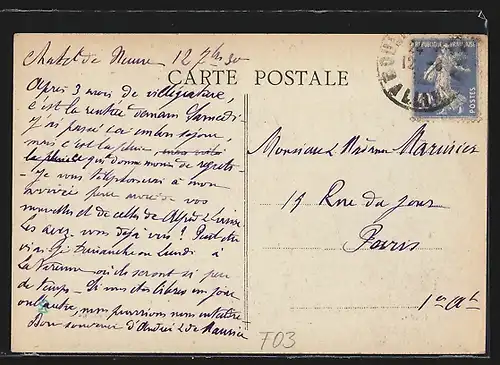 12 7bre 30
CARTE POSTALE
REPUBLIQUE FRANÇAISE
POSTES
Après 3 mois de villégiature,
c'est la rentrée demain Samedi
J'ai passé un bon séjour
mais c'est la pluie
la pluie qui donne moins de regrets
Je vous téléphonerai à mon
arrivée pour avoir de vos
nouvelles et de celles de
Les avez vous déjà vus ? Peut être
Dimanche ou Lundi à
La Varenne où ils seront si peu
de temps - Si vous êtes libres un jour
ou l'autre, nous pourrions nous
Bon souvenir d'André & de Maurice
Monsieur & Madame
15 Rue du Jour
Paris
1er Art
F03